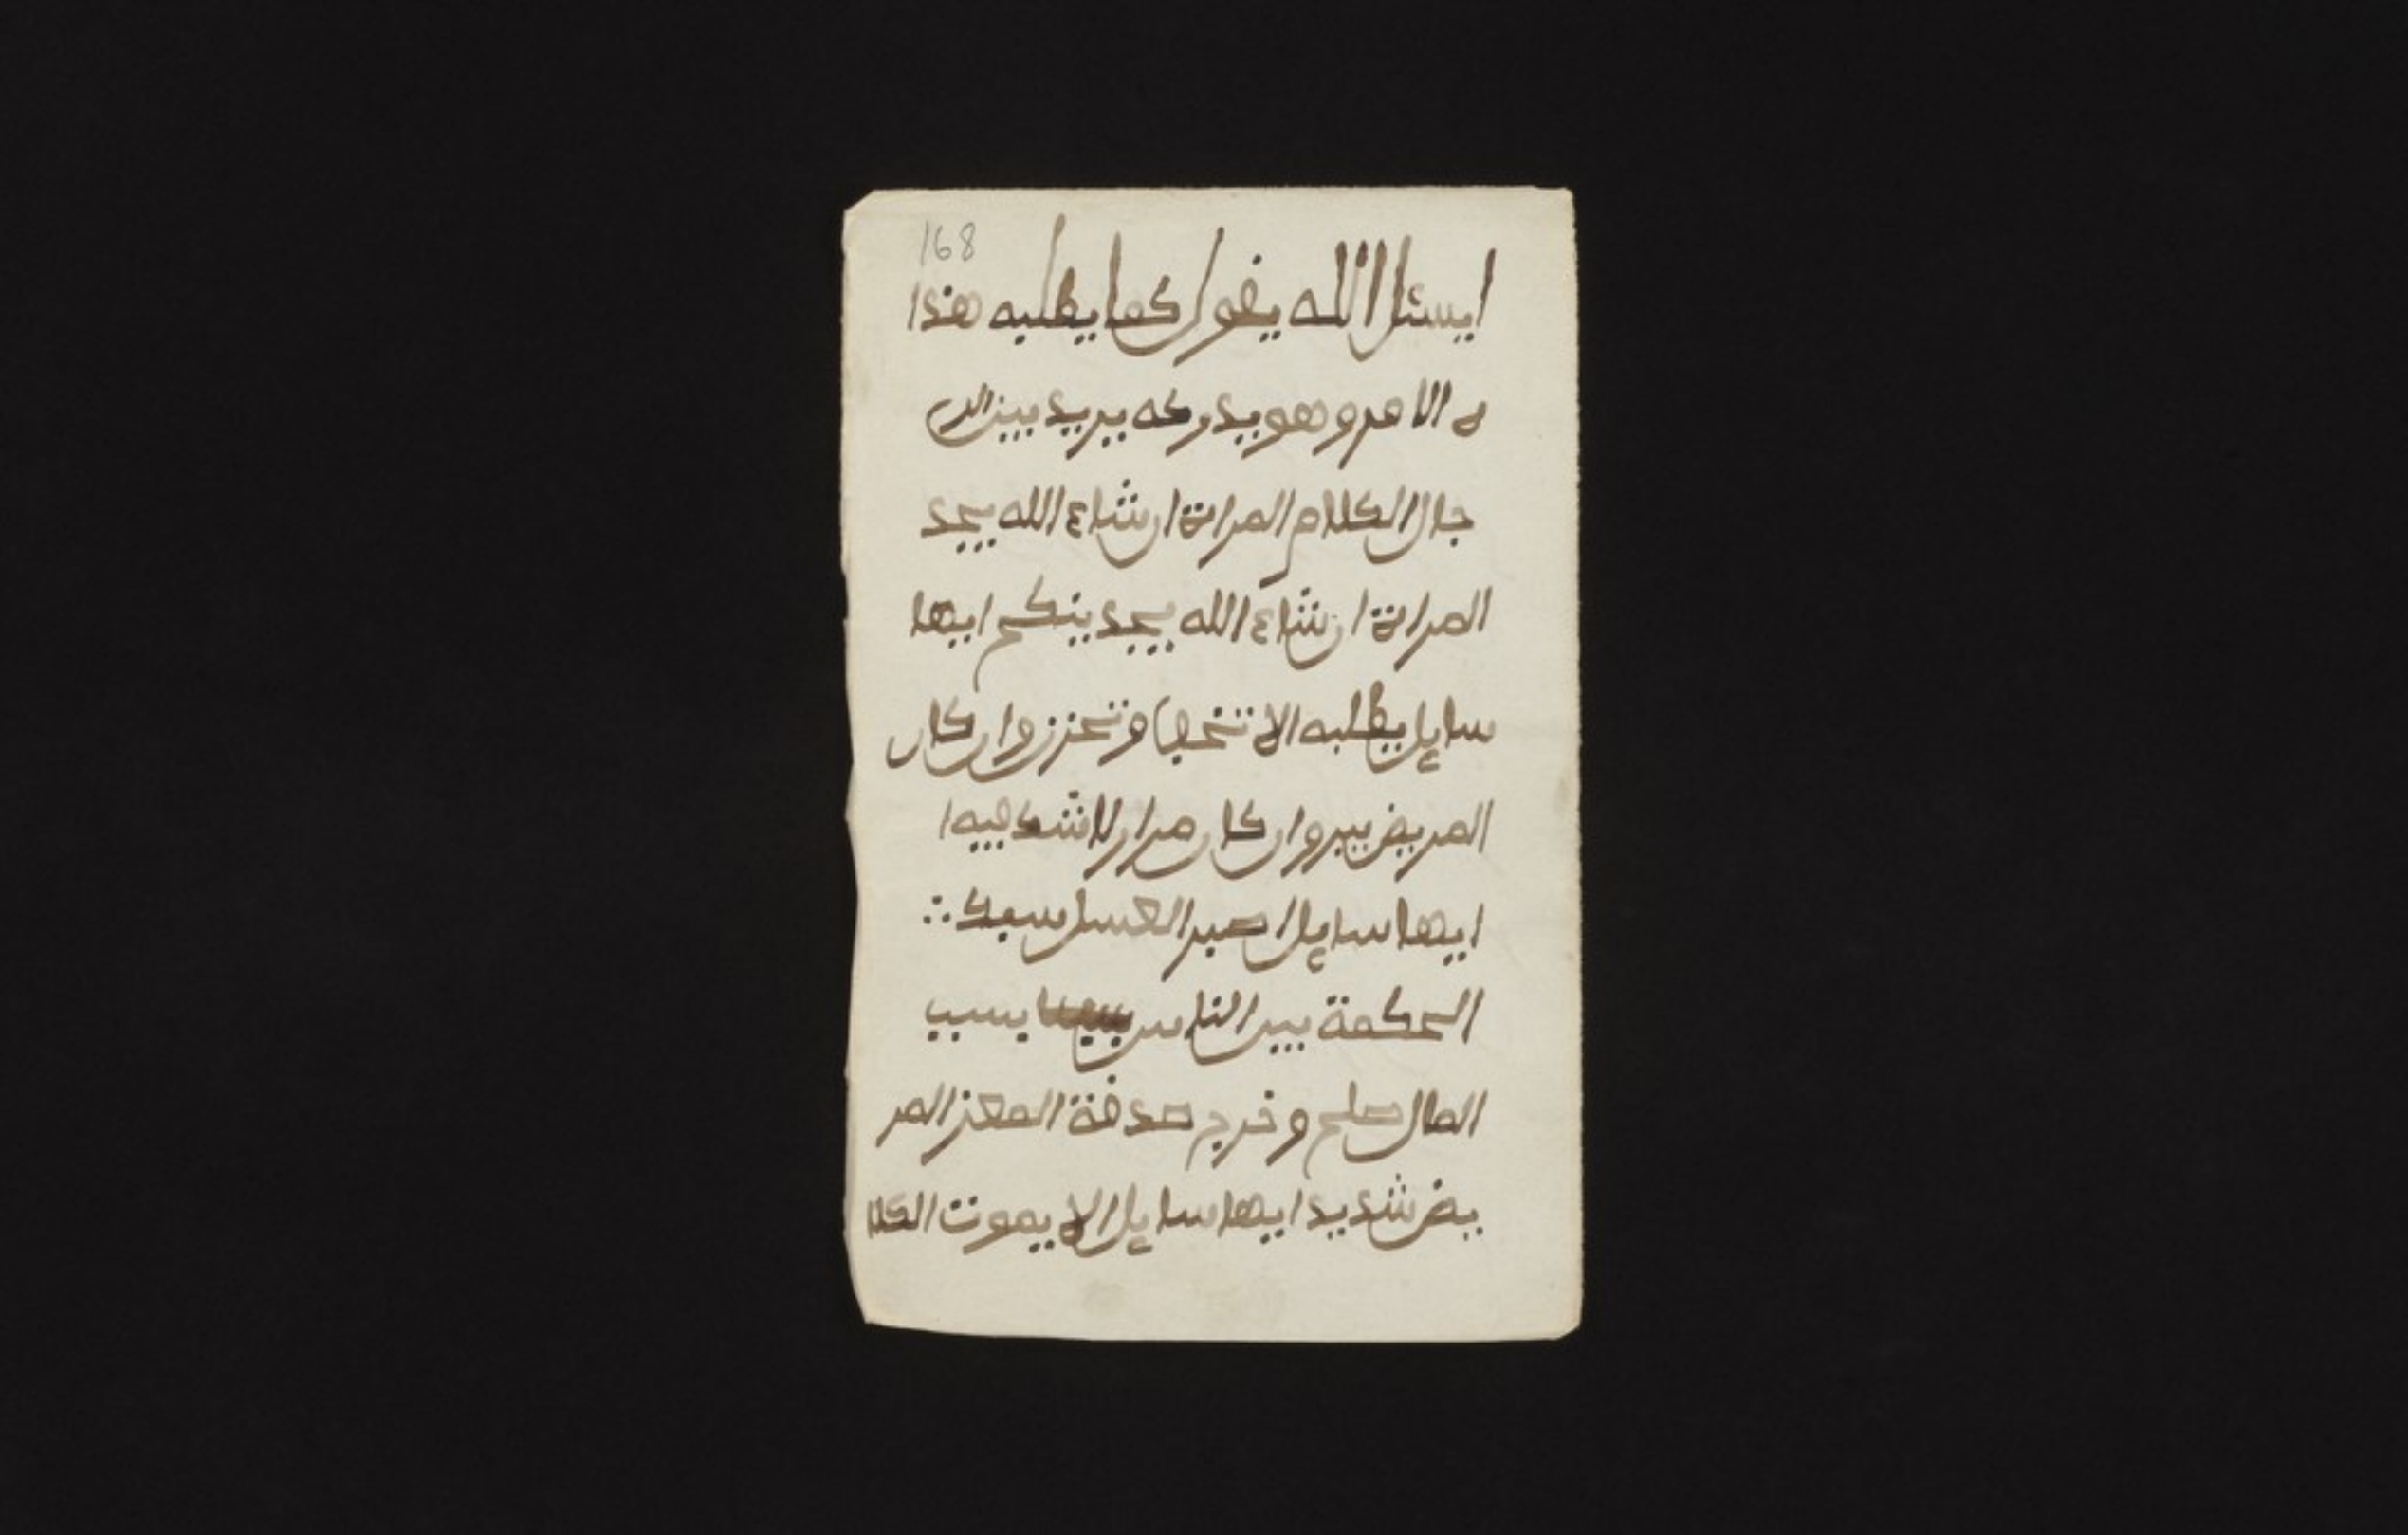 168
ايسئل الله يقول كما يطلبه هذا
ه الامر وهو يدركه يريد بين الر
جال الكلام المراة ان شاء الله يجد
المراة ان شاء الله يجد ينكح ايها
سايل يطلبه الا تخف و تحزن وان كان
المريض يبر وان كان مرار لا شك فيه ا
ايها سايل اصبر العسل سعدك
الحكمة بين الناس يسبب
المال صلح و خرج صدقة المعز المر
يض شديد ايها سايل الا يموت الكلا